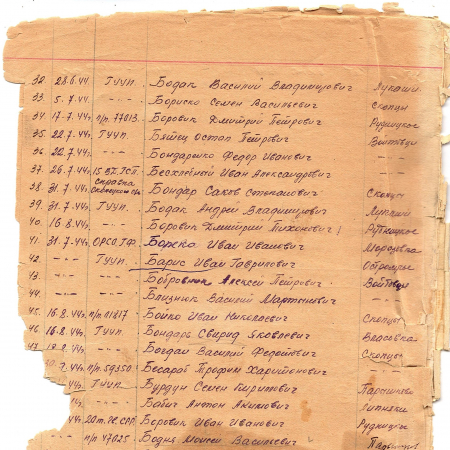 32. 28.6.44. ГУУП. Бодак Василий Владимирович Лукаши
33. 5.7.44. - - - Бориско Семен Васильевич Скопцы
34. 17.7.44. п/п. 77013. Боровик Дмитрий Петрович Рудницкое
35. 22.7.44. ГУУП. Бятец Остап Петрович Войтовцы
36. 22.7.44. - - - Бондаренко Федор Иванович - - -
37. 26.7.44. Бесхлебный Иван Александрович - - -
38. 31.7.44. справка Бондар Савва Степанович Скопцы
39. 31.7.44. ГУУП. Бодак Андрей Владимирович Лукаши
40. 16.8.44. - - - Боровик Дмитрий Тихонович Рудницкое
41. 31.7.44. Божко Иван Иванович
42. - - - ГУУП. Барис Иван Гаврилович
43. - - - Бобровник Алексей Петрович Войтовцы
44. - - - Близнюк Василий Мартынович
45. 16.8.44г. п/п 01817 Бойко Иван Николаевич Скопцы
46. 16.8.44г. ГУУП. Бондарь Свирид Яковлевич Власовка
44г. - - - Богдан Василий Федотович Скопцы
44г. п/п 59350 Бесараб Трофим Харитонович - - -
44г. ГУУП. Бурдун Семен Кириллович Парышков
44г. - - - Бабич Антон Акимович Липняки
44г. Боровик Иван Иванович Рудницкое
п/п 47025 Бодня Моисей Васильевич